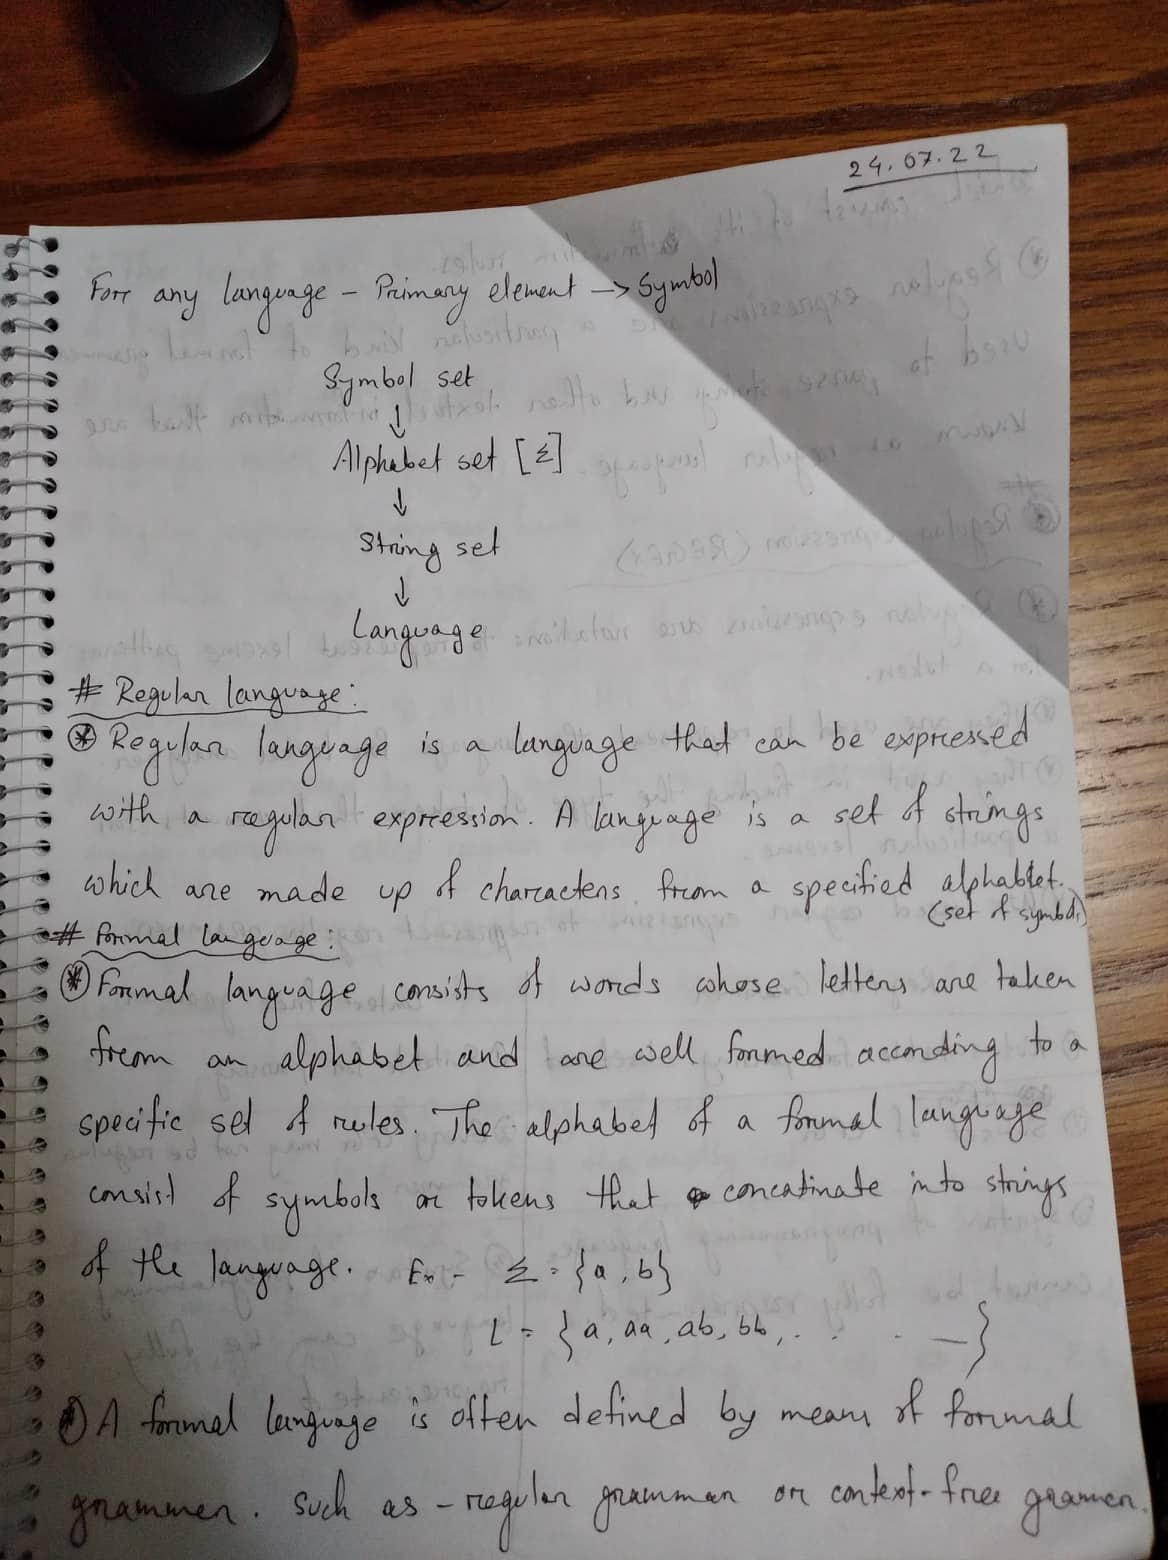 24.07.22
Forr any language - Primary element -> Symbol
Symbol set
↓
Alphabet set [Σ]
↓
String set
↓
Language
# Regular language:
⊛ Regular language is a language that can be exprressed
with a regular exprression. A language is a set of strings
which are made up of charracters from a specified alphablet.
(set of symbols)
# Formal language:
⊛ Formal language consists of words whose letters are taken
from an alphabet and are well formed according to a
specific set of rules. The alphabet of a formal language
consist of symbols or tokens that concatinate into strings
of the language. Ex - Σ = {a, b}
L = {a, aa, ab, bb, . . . _}
⊛ A formal language is often defined by means of formal
grammer. Such as - regular grammar or context-free gramer.